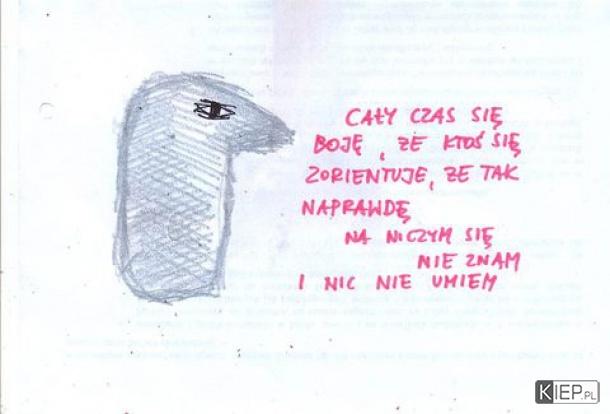 CAŁY CZAS SIĘ
BOJĘ, ŻE KTOŚ SIĘ
ZORIENTUJE, ŻE TAK
NAPRAWDĘ
NA NICZYM SIĘ
NIE ZNAM
I NIC NIE UMIEM
KIEP.PL